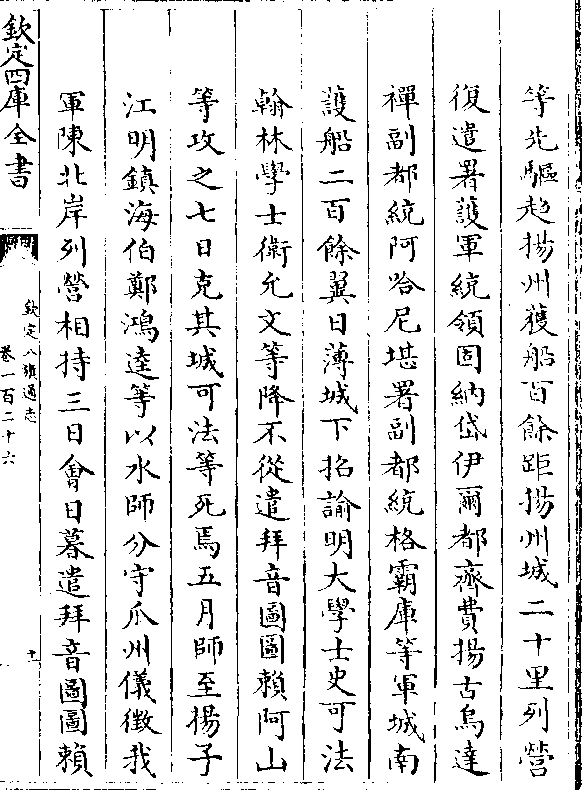 等先驅趋揚州獲船百餘距揚州城二十里列營
復遣署護軍統領固納岱伊爾都齊費揚古烏達
禪副都統阿哈尼堪署副都統格霸庫等軍城南
䕶船二百餘翼日薄城下招諭明大學士史可法
翰林學士衛允文等降不從遣拜音圖圖賴阿山
等攻之七日克其城可法等死焉五月師至揚子
江明鎮海伯鄭鴻逵等以水師分守瓜州儀徵我
軍陳北岸列營相持三日會日暮遣拜音圖圖賴
欽定四庫全書
欽定八旗通志
卷一百二十六